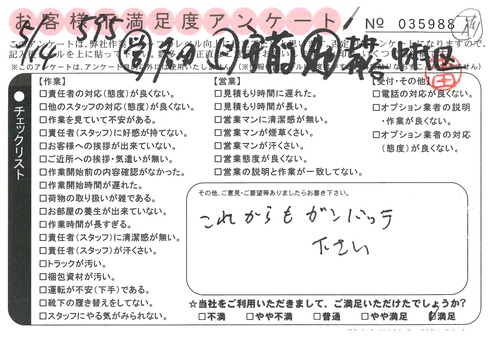 お客様満足度アンケート
No 035988
5/4 575
●チェックリスト
【作業】
□責任者の対応(態度)が良くない。
□他のスタッフの対応(態度)が良くない。
□作業を見ていて不安がある。
□責任者(スタッフ)に好感が持てない。
□お客様への挨拶が出来ていない。
□ご近所への挨拶・気遣いが無い。
□作業開始前の内容確認がなかった。
□作業開始時間が遅れた。
□荷物の取り扱いが雑である。
□お部屋の養生が出来ていない。
□作業時間が長すぎる。
□責任者(スタッフ)に清潔感が無い。
□責任者(スタッフ)が汗くさい。
□トラックが汚い。
□梱包資材が汚い。
□運転が不安(下手)である。
□靴下の履き替えをしてない。
□スタッフにやる気がみられない。
【営業】
□見積もり時間に遅れた。
□見積もり時間が長い。
□営業マンに清潔感が無い。
□営業マンが煙草くさい。
□営業マンが汗くさい。
□営業態度が良くない。
□営業の説明と作業が一致してない。
【受付・その他】
□電話の対応が良くない。
□オプション業者の説明
・作業が良くない。
□オプション業者の対応
(態度)が良くない。
その他、ご意見・ご要望等ありましたらお書き下さい。
これからもガンバッテ
下さい
☆当社をご利用いただきまして、ご満足いただけたでしょうか?
□不満 □やや不満 □普通 □やや満足 ☑満足